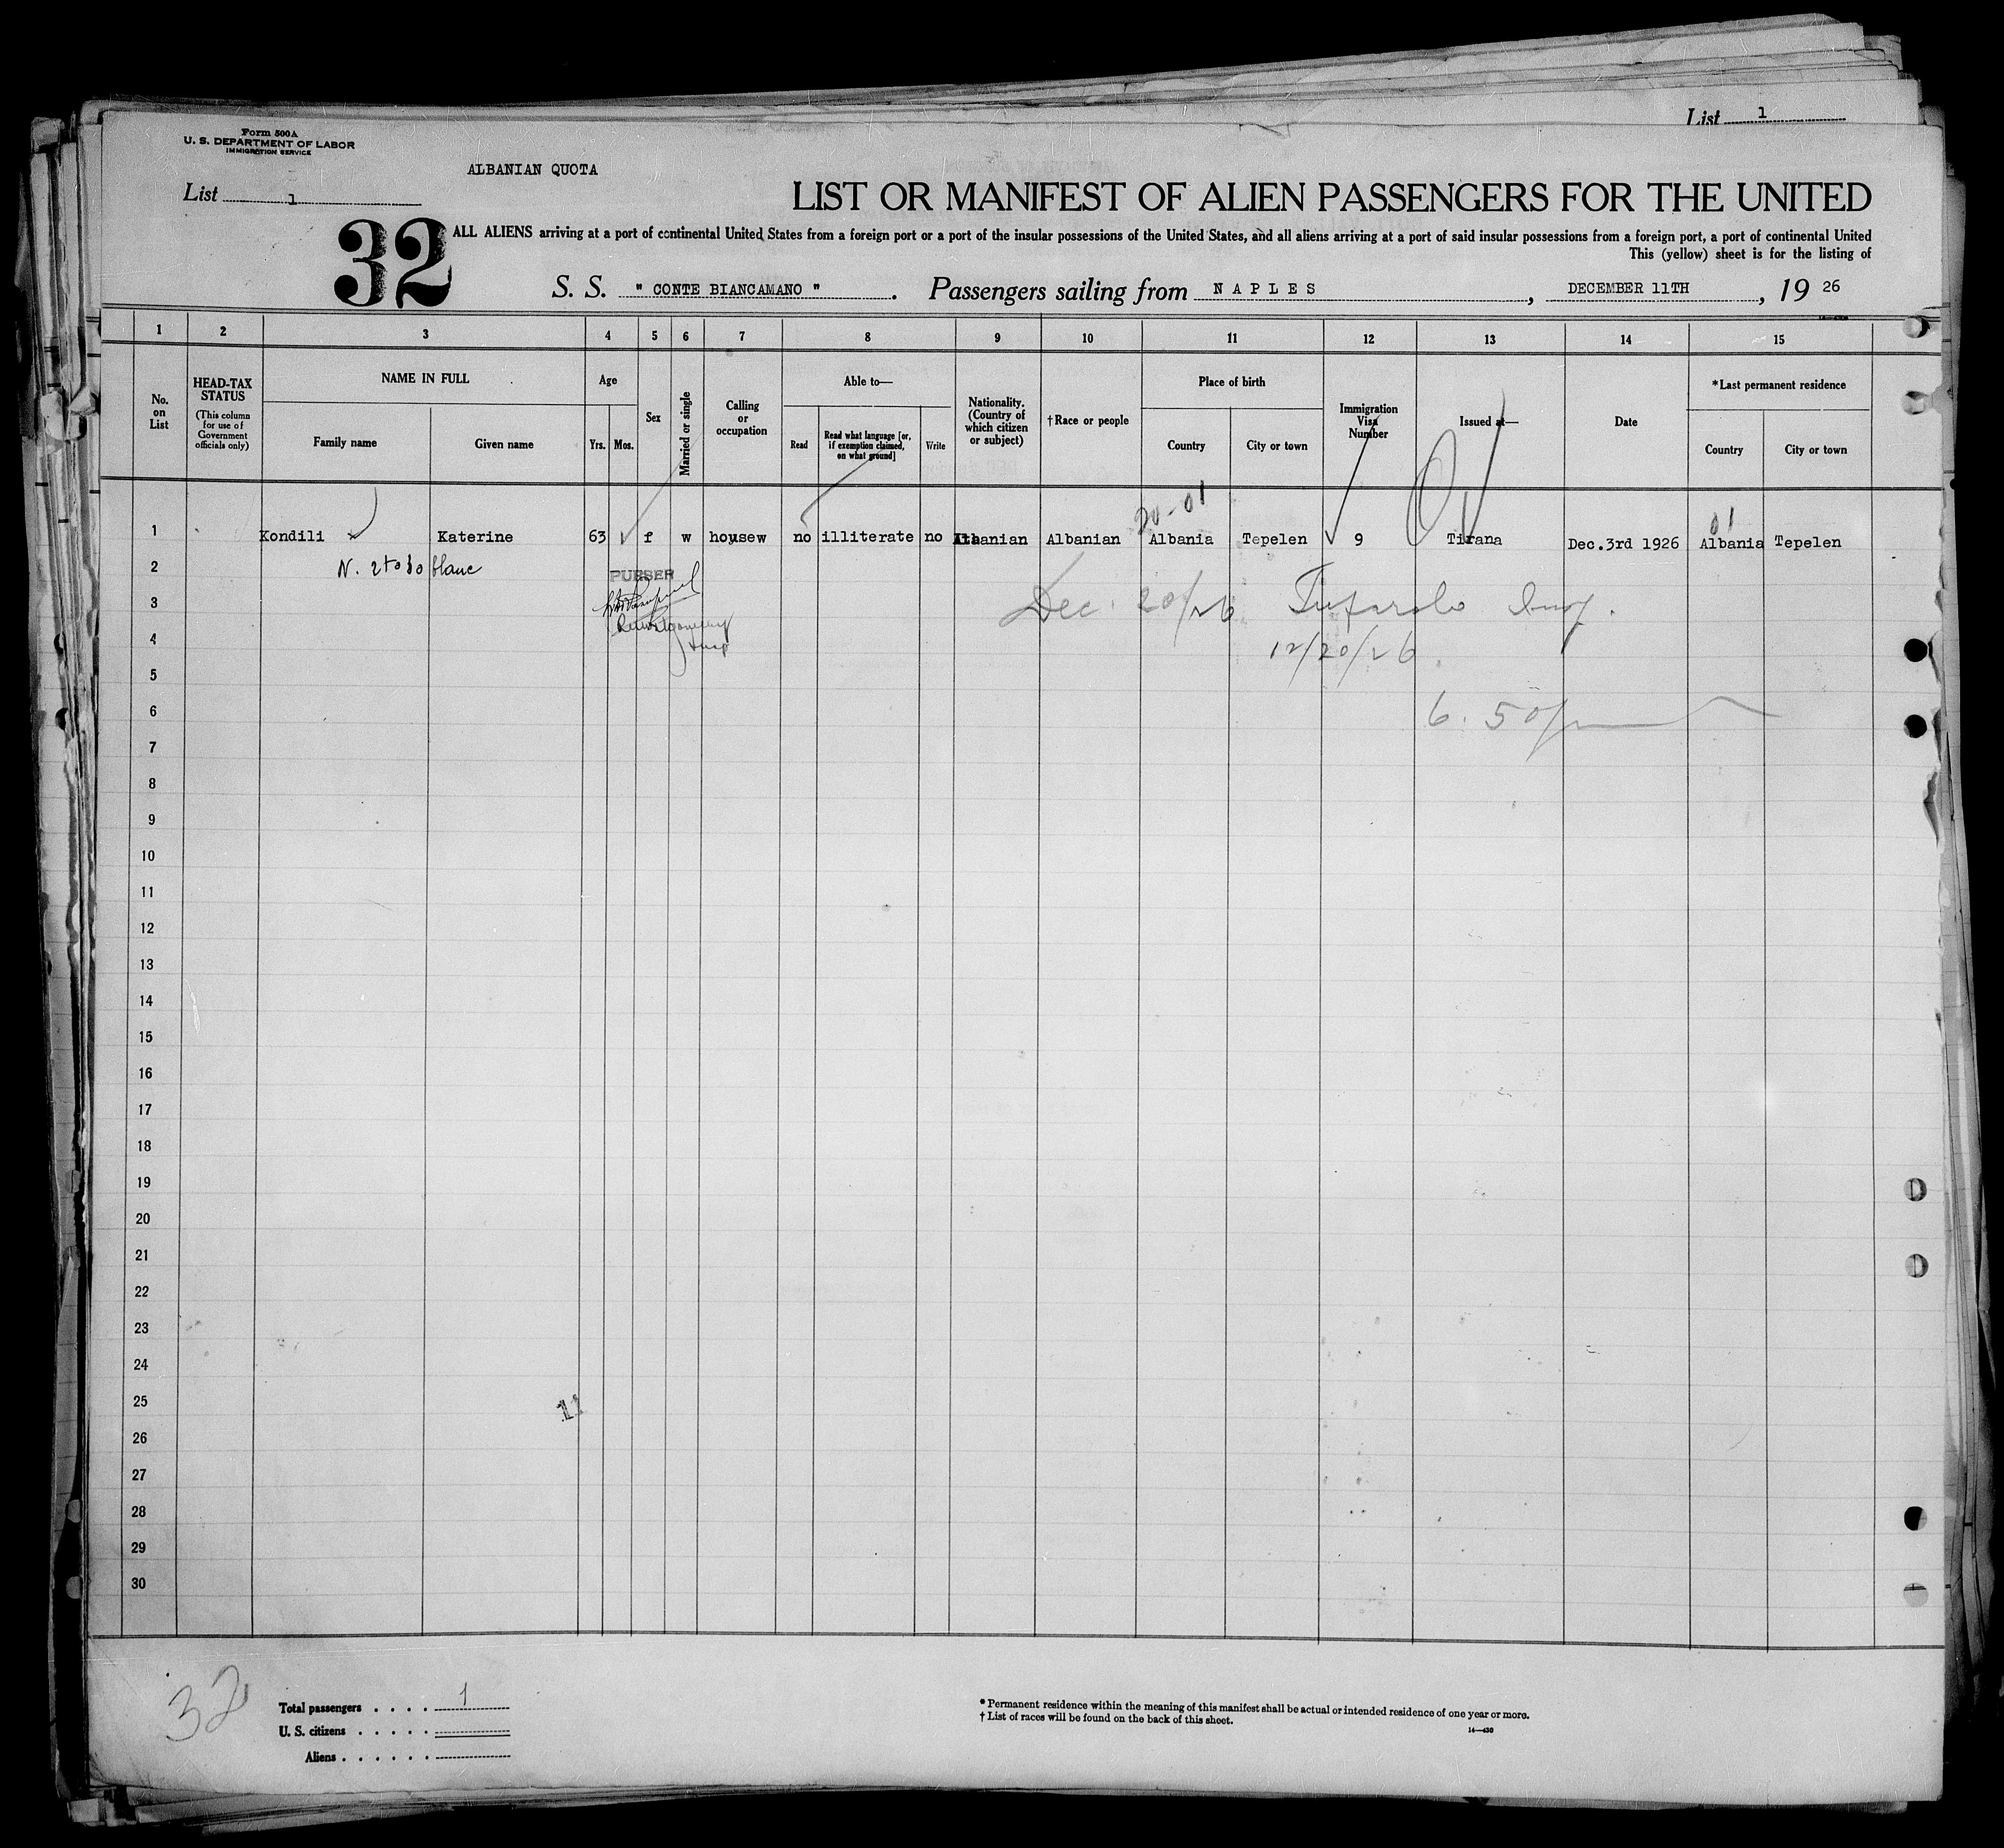 List 1
Form 500A
U. S. DEPARTMENT OF LABOR
IMMIGRATION SERVICE
ALBANIAN QUOTA
List 1
LIST OR MANIFEST OF ALIEN PASSENGERS FOR THE UNITED
32
ALL ALIENS arriving at a port of continental United States from a foreign port or a port of the insular possessions of the United States, and all aliens arriving at a port of said insular possessions from a foreign port, a port of continental United
This (yellow) sheet is for the listing of
S. S. " CONTE BIANCAMANO ". Passengers sailing from NAPLES, DECEMBER 11TH, 19 26
1 2 3 4 5 6 7 8 9 10 11 12 13 14 15
No. on List
HEAD-TAX STATUS
(This column for use of Government officials only)
NAME IN FULL
Family name
Given name
Age
Yrs.
Mos.
Sex
Married or single
Calling or occupation
Able to—
Read
Read what language [or, if exemption claimed, on what ground]
Write
Nationality. (Country of which citizen or subject)
†Race or people
Place of birth
Country
City or town
Immigration Visa Number
Issued at—
Date
*Last permanent residence
Country
City or town
20-01
01
1 Kondili Katerine 63 f w housew no illiterate no Albanian Albanian Albania Tepelen 9 Tirana Dec.3rd 1926 Albania Tepelen
2 N. 2 to 30 blanc
PURSER
3 Dec. 20/26 Insp.
4 Insp
12/20/26
5
6 6.50/
7
8
9
10
11
12
13
14
15
16
17
18
19
20
21
22
23
24
25
11
26
27
28
29
30
32
Total passengers . . . . 1
U. S. citizens . . . . .
Aliens . . . . . .
* Permanent residence within the meaning of this manifest shall be actual or intended residence of one year or more.
† List of races will be found on the back of this sheet.
14—430